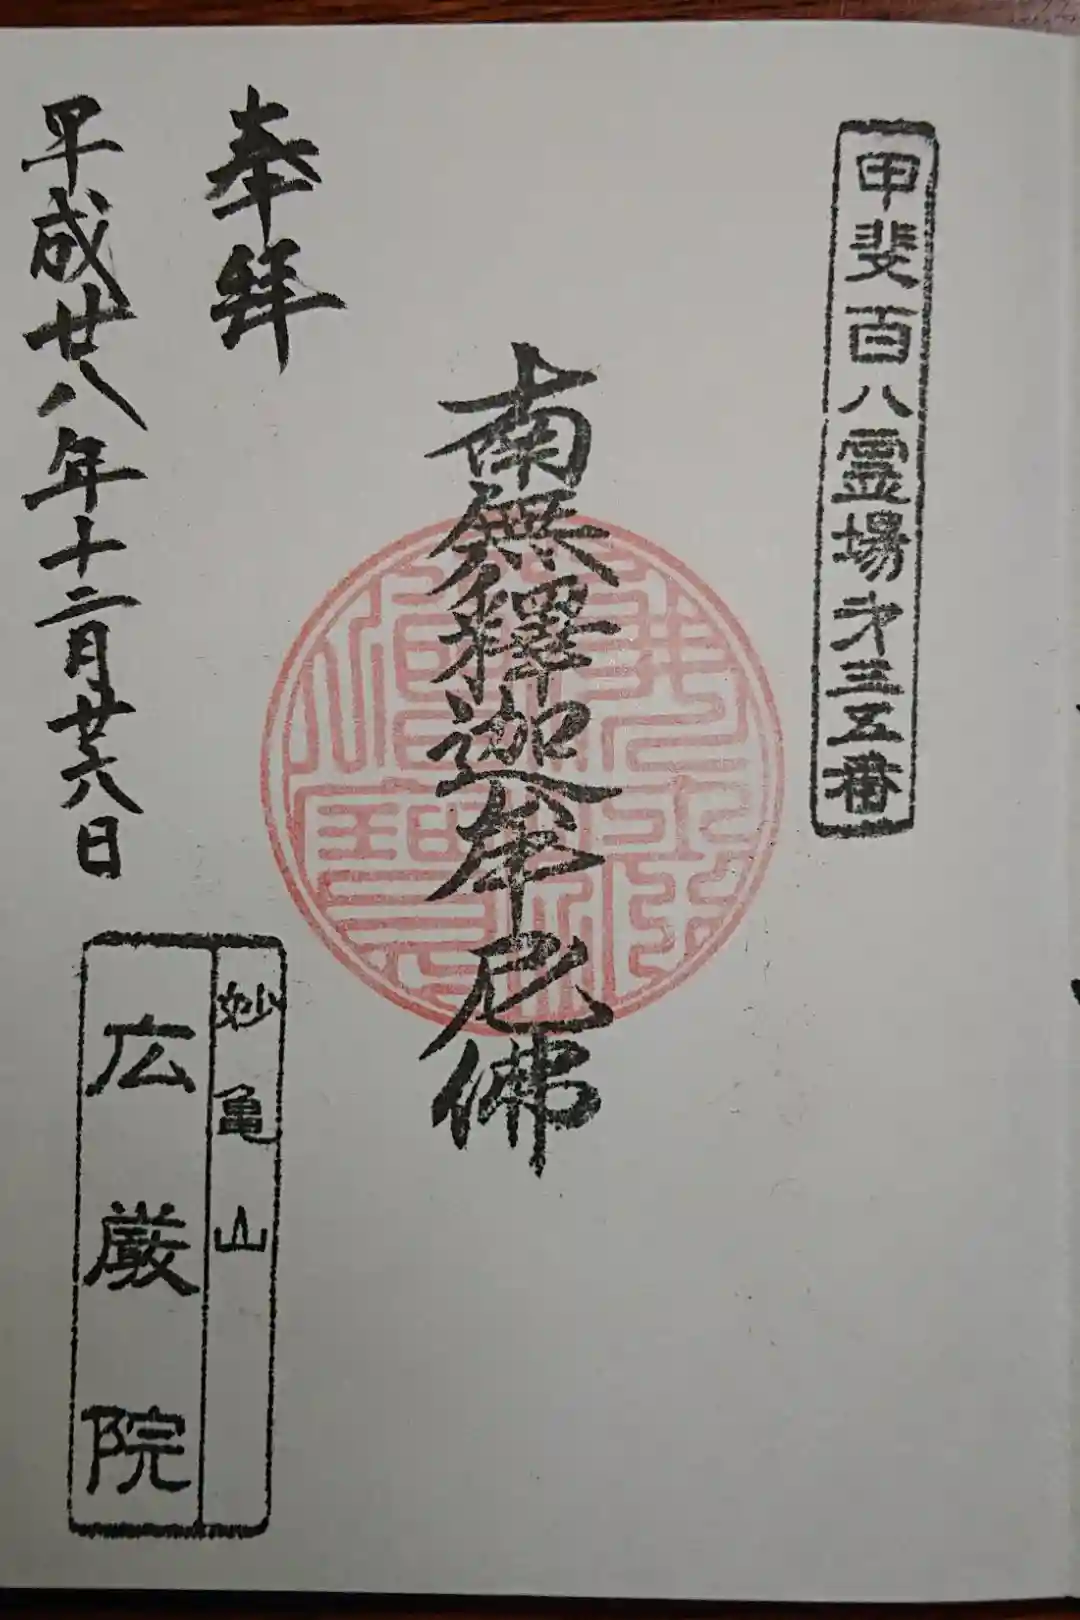 甲斐百八霊場第三五番
南無釋迦牟尼佛
奉拝
平成廿八年十二月廿六日
妙亀山
広厳院